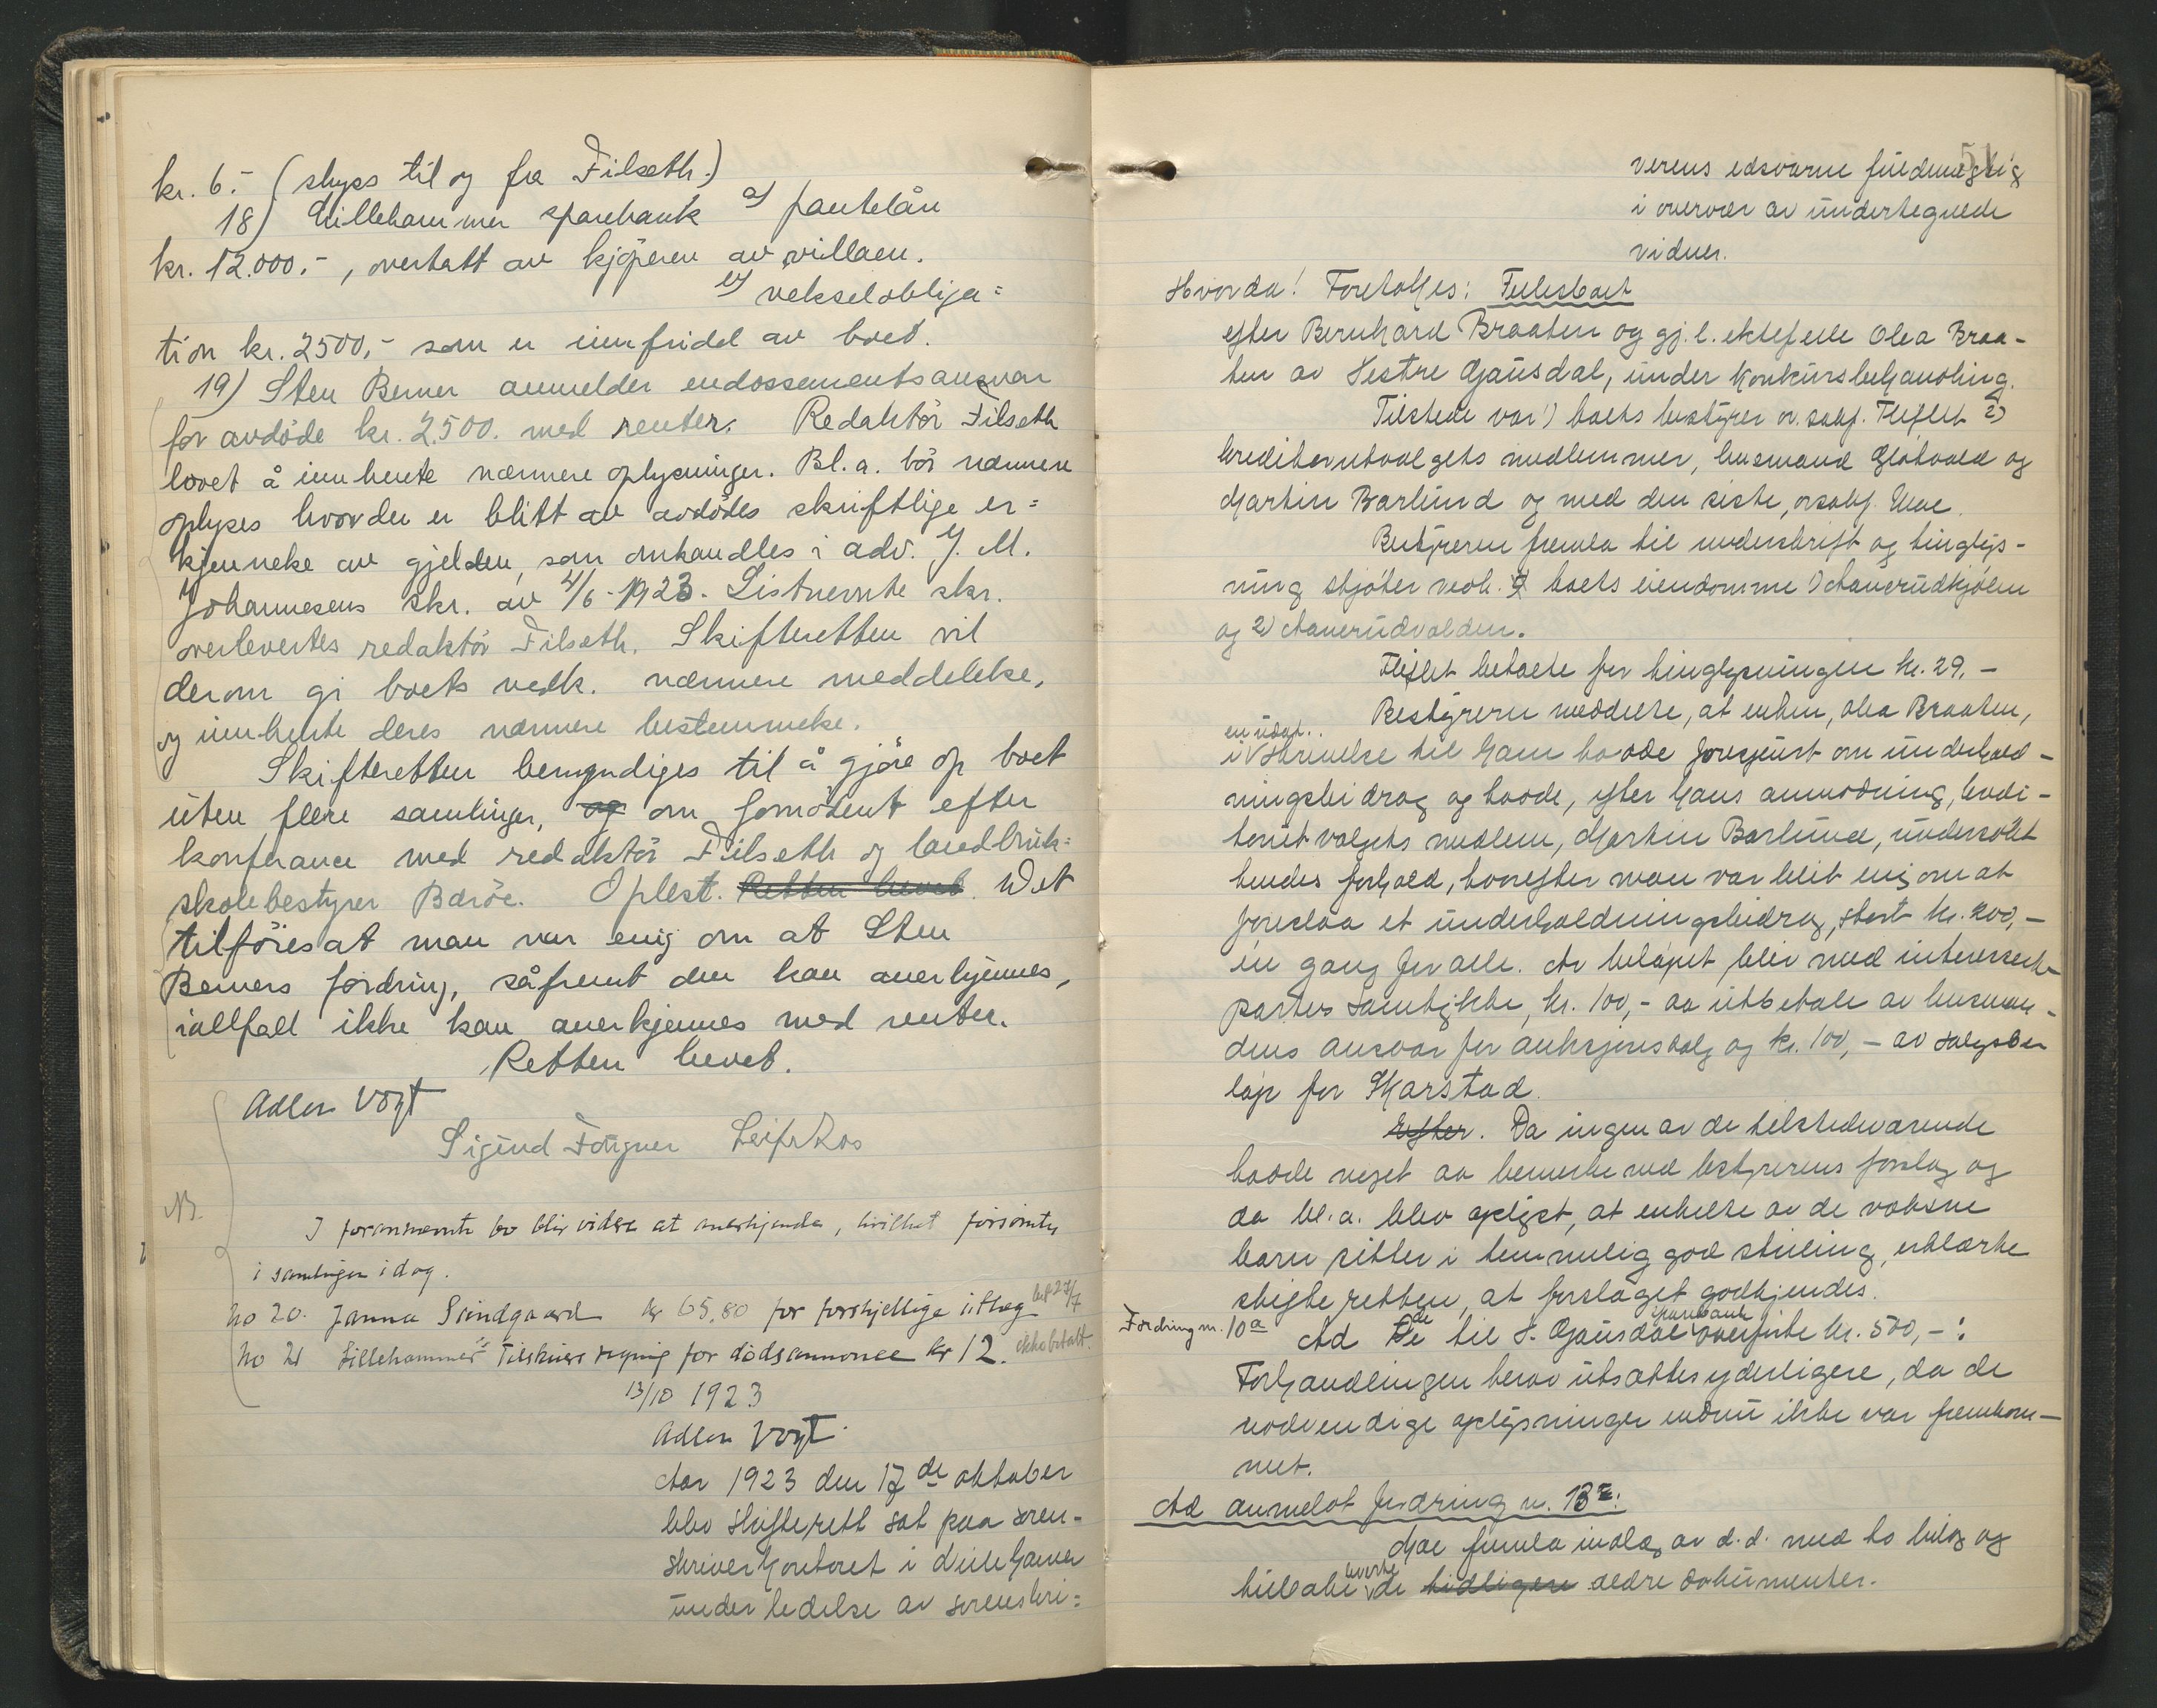 kr. 6.- (skyss til og fra Filseth.)
18) Lillehammer sparebank a) pantelån
kr. 12.000.-, overtatt av kjøperen av villaen.
b) vekselobliga=
tion kr. 2500,- som er innfridd av boet.
19) Sten Berner anmelder endossementsansvar
for avdöde kr. 2.500. med renter. Redaktör Filseth
lovet å innhente nærmere oplysninger. Bl.a. bör nærmere
oplyses hvor der er blitt av avdödes skriftlige er=
kjennelse av gjelden, som omhandles i adv. J. M.
Johannesens skr. av 4/6-1923. Sistnevnte skr.
overlevertes redaktör Filseth. Skifteretten vil
derom gi boets vedk. nærmere meddelelse,
og innhente deres nærmere bestemmelse.
Skifteretten bemyndiges til å gjöre op boet
uten flere samlinger, og om fornödent efter
konferance med redaktör Filseth og landbruk=
skolebestyrer Baröe. Oplest. Retten hevet. Det
tilföres at man var enig om at Sten
Berners fordring, såfremt den kan anerkjennes,
iallfall ikke kan anerkjennes med renter.
Retten hevet.
Adler Vogt
Sigurd Fougner Leif Ros
NB.
I forannævnte bo blir videre at anerkjende, hvilket forsömtes
i samlingen idag.
No 20. Janna Sundgaard kr 65,80 for forskjellige utlæg bet 27/7
No 21 Lillehammer Tilskuers regning for dödsannonce kr 12. ikke betalt.
13/10 1923
Adler Vogt.
Aar 1923 den 17de oktober
blev skifterett sat paa soren-
skriverkontoret i Lillehamer
under ledelse av sorenskri=
51
verens edsvorne fuldmegtig
i overvær av undertegnede
vidner.
Hvorda! Foretokes: Fellesboet
efter Bernhard Braaten og gj.l. ektefelle Olea Braa-
ten av Vestre Gausdal, under konkursbehandling.
Tilstede var 1) boets bestyrer o. sakf. Fliflet 2)
kreditorutvalgets medlemmer, lensmand Gløtvold og
Martin Barlund og med den siste, o.sakf. Moe.
Bestyreren fremla til underskrift og tinglys-
ning skjøter vedk. boets eiendomme 1)
og 2)
Fliflet betalte for tinglysningen kr. 29,-
Bestyreren meddelte, at enken, Olea Braaten,
en udat.
i skrivelse til ham hadde foresjunt om underhold-
ningsbidrag og hadde, efter hans anmodning, kredi-
torutvalgets medlem, Martin Barlund, undersøkt
hendes forhold, hvorefter man var blit enig om at
foreslaa et underholdningsbidrag, stort kr. 200,-
en gang for alle. Av beløpet blir med interesserte
parters samtykke, kr. 100,- aa utbetale av lensman-
dens ansvar for auksjonssalg og kr. 100,- av salgsbe-
løp for Skarstad.
Efter. Da ingen av de tilstedeværende
hadde noget aa bemerke ved bestyrerens forslag og
da bl.a. blev oplyst, at enkelte av de voksne
barn sitter i temmelig god stilling, erklærte
skifteretten, at forslaget godkjendes.
Fordring nr. 10a Ad de til V. Gausdal sparebank overførte kr. 500,-:
Forhandlingen herav utsattes yderligere, da de
nødvendige oplysninger endnu ikke var fremkom-
met.
Ad anmeldt fordring nr. 13:
Moe fremla indlæg av d.d. med to bilag og
tilbakeleverte de tidligere ældre dokumenter.